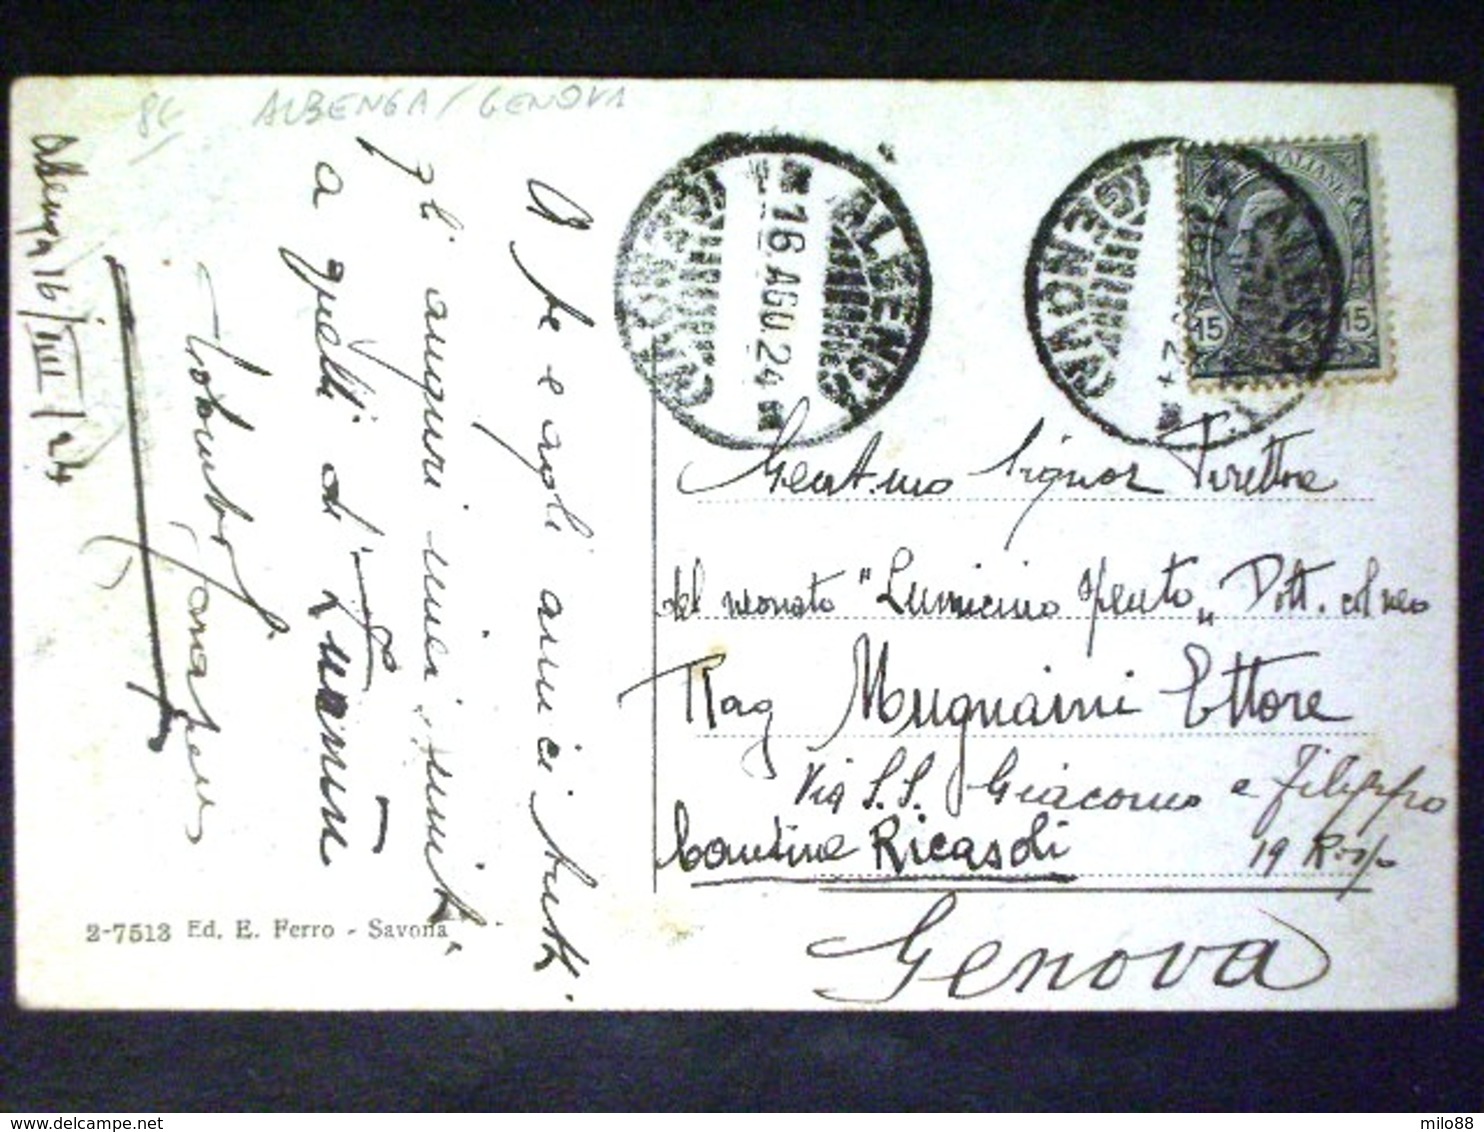 ALBENGA / GENOVA
Albenga 16/VIII/24
A te e agli amici tutti
gli auguri miei uniti
a quelli di
2-7513 Ed. E. Ferro - Savona
ALBENGA
16.AGO.24
GENOVA
ITALIANE
15 15
Gent.mo Signor Direttore
del neonato "Lumicino spento" Dott.
Rag Mugnaini Ettore
Via S.S. Giacomo e Filippo
19 Rosso
Cantine Ricasoli
Genova
delcampe.net
milo88